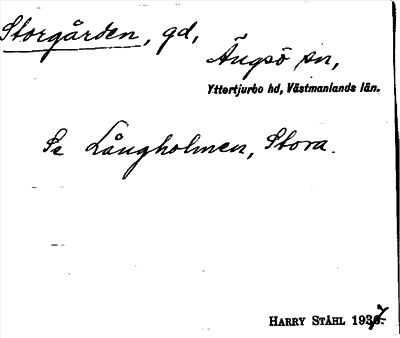 Storgården, gd,
Ängsö sn,
Yttertjurbo hd, Västmanlands län.
Se Långholmen, Stora.
HARRY STÅHL 1937.